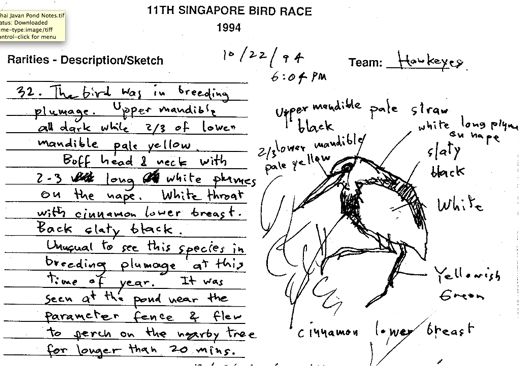 hai Javan Pond Notes.tif
tatus: Downloaded
me-type:image/tiff
ontrol-click for menu
11TH SINGAPORE BIRD RACE
1994
10/22/94
6:04 PM
Rarities - Description/Sketch
Team: Hawkeyes
32. The bird was in breeding
plumage. Upper mandible
all dark while 2/3 of lower
mandible pale yellow.
Boff head & neck with
2-3 long white plumes
on the nape. White throat
with cinnamon lower breast.
Back slaty black.
Unusual to see this species in
breeding plumage at this
time of year. It was
seen at the pond near the
parameter fence & flew
to perch on the nearby tree
for longer than 20 mins.
Upper mandible black
pale straw
white long plum
on nape
2/3 lower mandible
pale yellow
slaty
black
White
Yellowish
Green
cinnamon lower breast